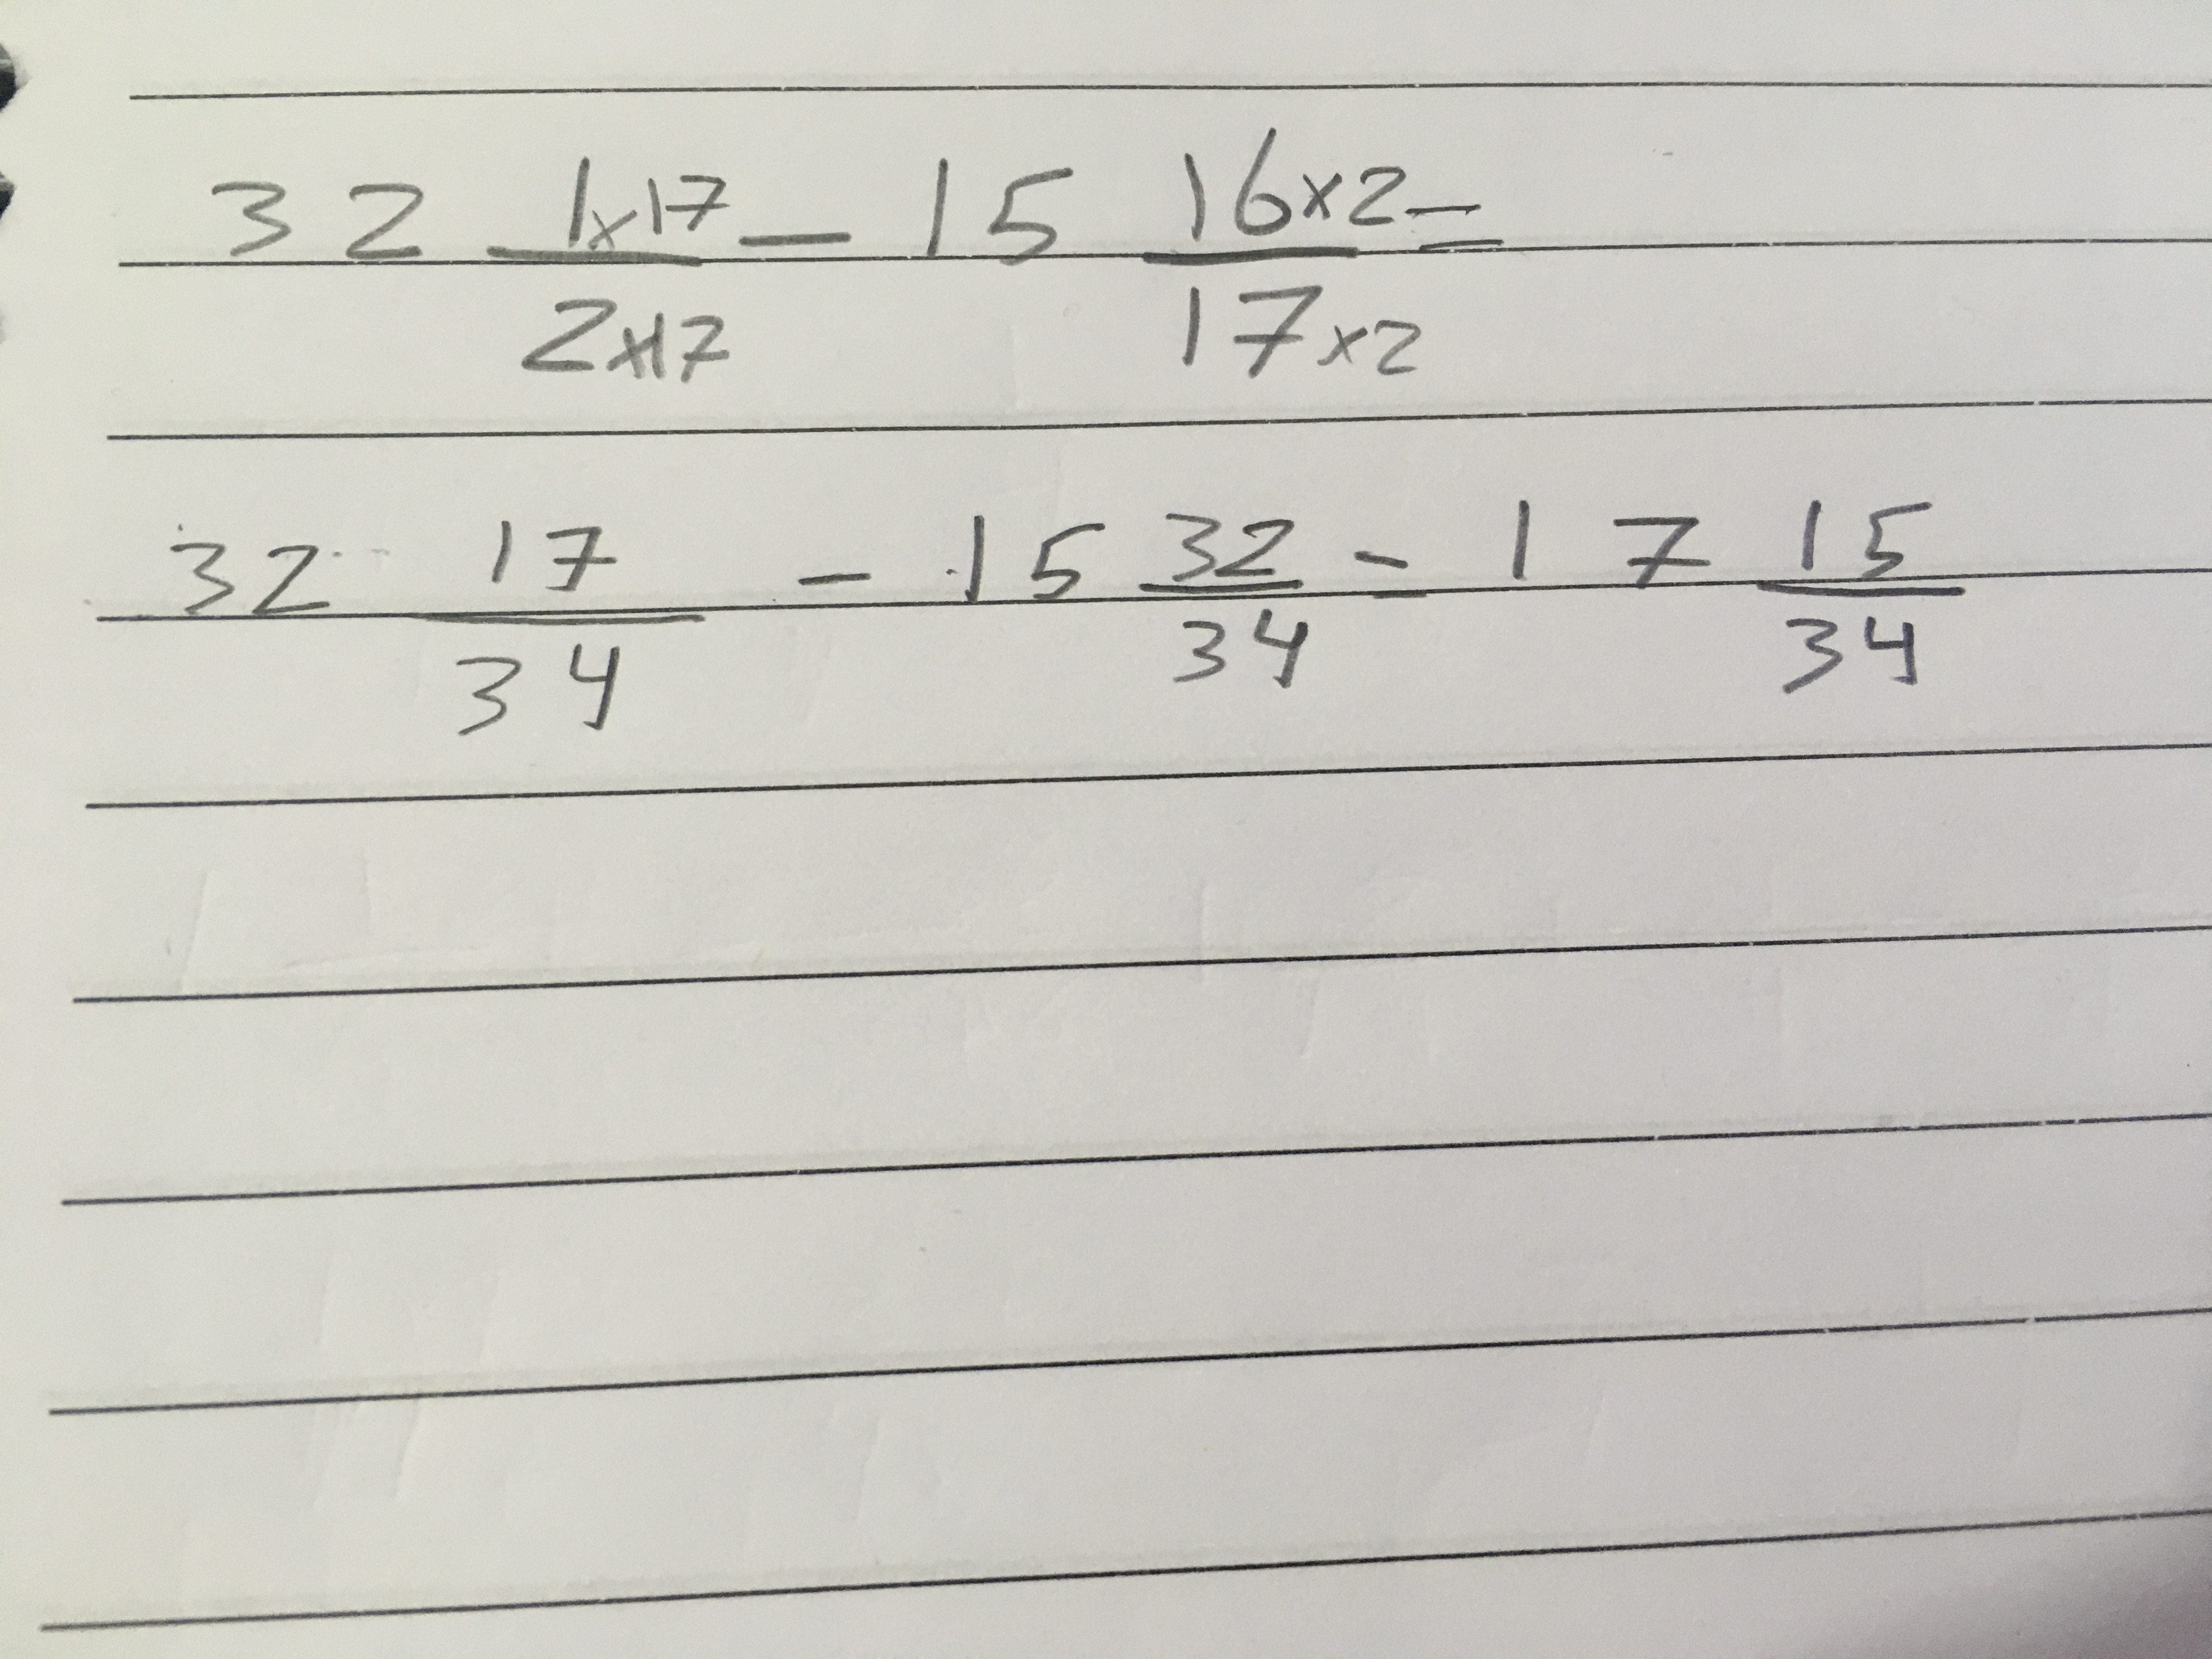 32 1×17/2×17 — 15 16×2/17×2 =
32 17/34 - 15 32/34 = 17 15/34